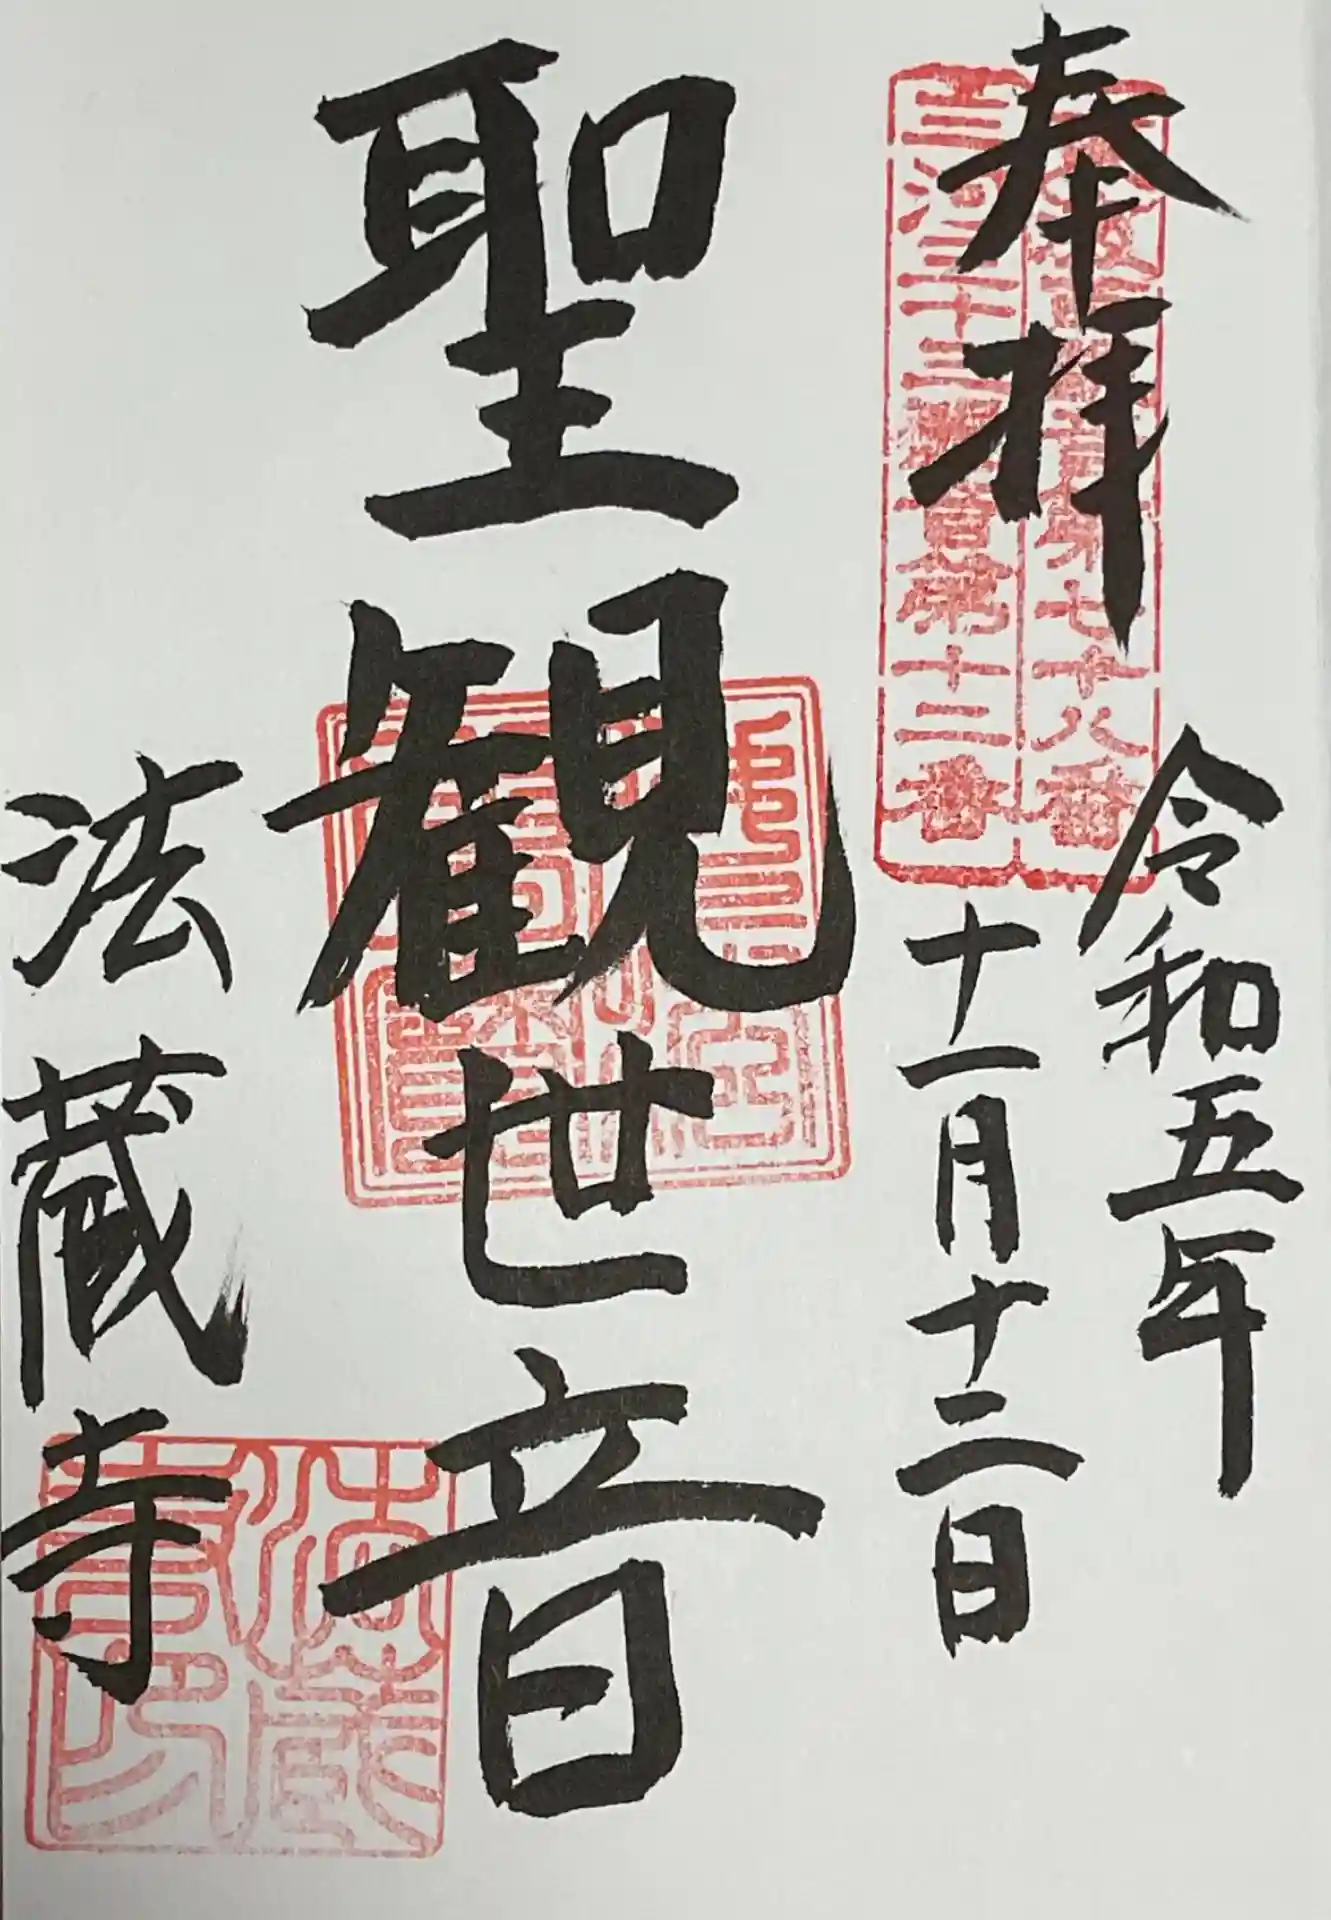 奉拝
三河三十三観音第十二番
令和五年
十一月十二日
聖観世音
法蔵寺
法蔵寺印